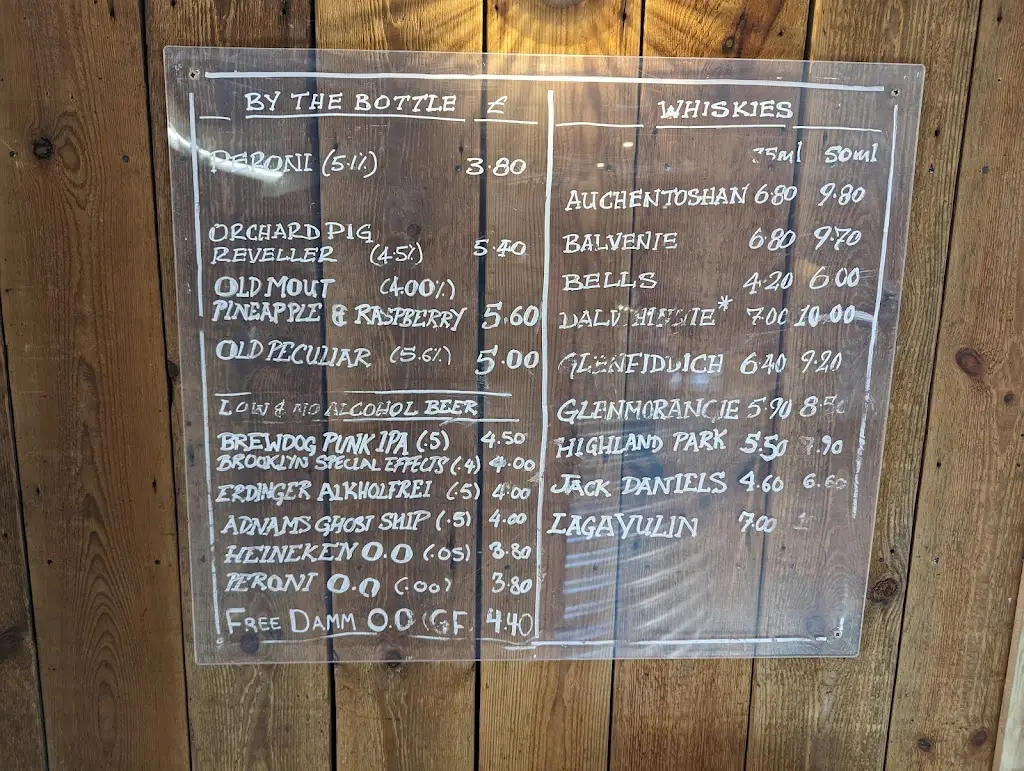 BY THE BOTTLE £
PERONI (5.1%) 3.80
ORCHARD PIG
REVELLER (4.5%) 5.40
OLD MOUT (4.00%)
PINEAPPLE & RASPBERRY 5.60
OLD PECULIAR (5.6%) 5.00
LOW & NO ALCOHOL BEER
BREWDOG PUNK IPA (.5) 4.50
BROOKLYN SPECIAL EFFECTS (.4) 4.00
ERDINGER ALKHOLFREI (.5) 4.00
ADNAMS GHOST SHIP (.5) 4.00
HEINEKEN 0.0 (.05) 3.80
PERONI 0.0 (.00) 3.80
FREE DAMM 0.0 (GF) 4.40
WHISKIES
50ml
AUCHENTOSHAN 6.80 9.80
BALVENIE 6.80 9.70
BELLS 4.20 6.00
DALWHINNIE* 7.00 10.00
GLENFIDDICH 6.40 9.20
GLENMORANGIE 5.90 8.50
HIGHLAND PARK 5.50 7.90
JACK DANIELS 4.60 6.60
LAGAVULIN 7.00